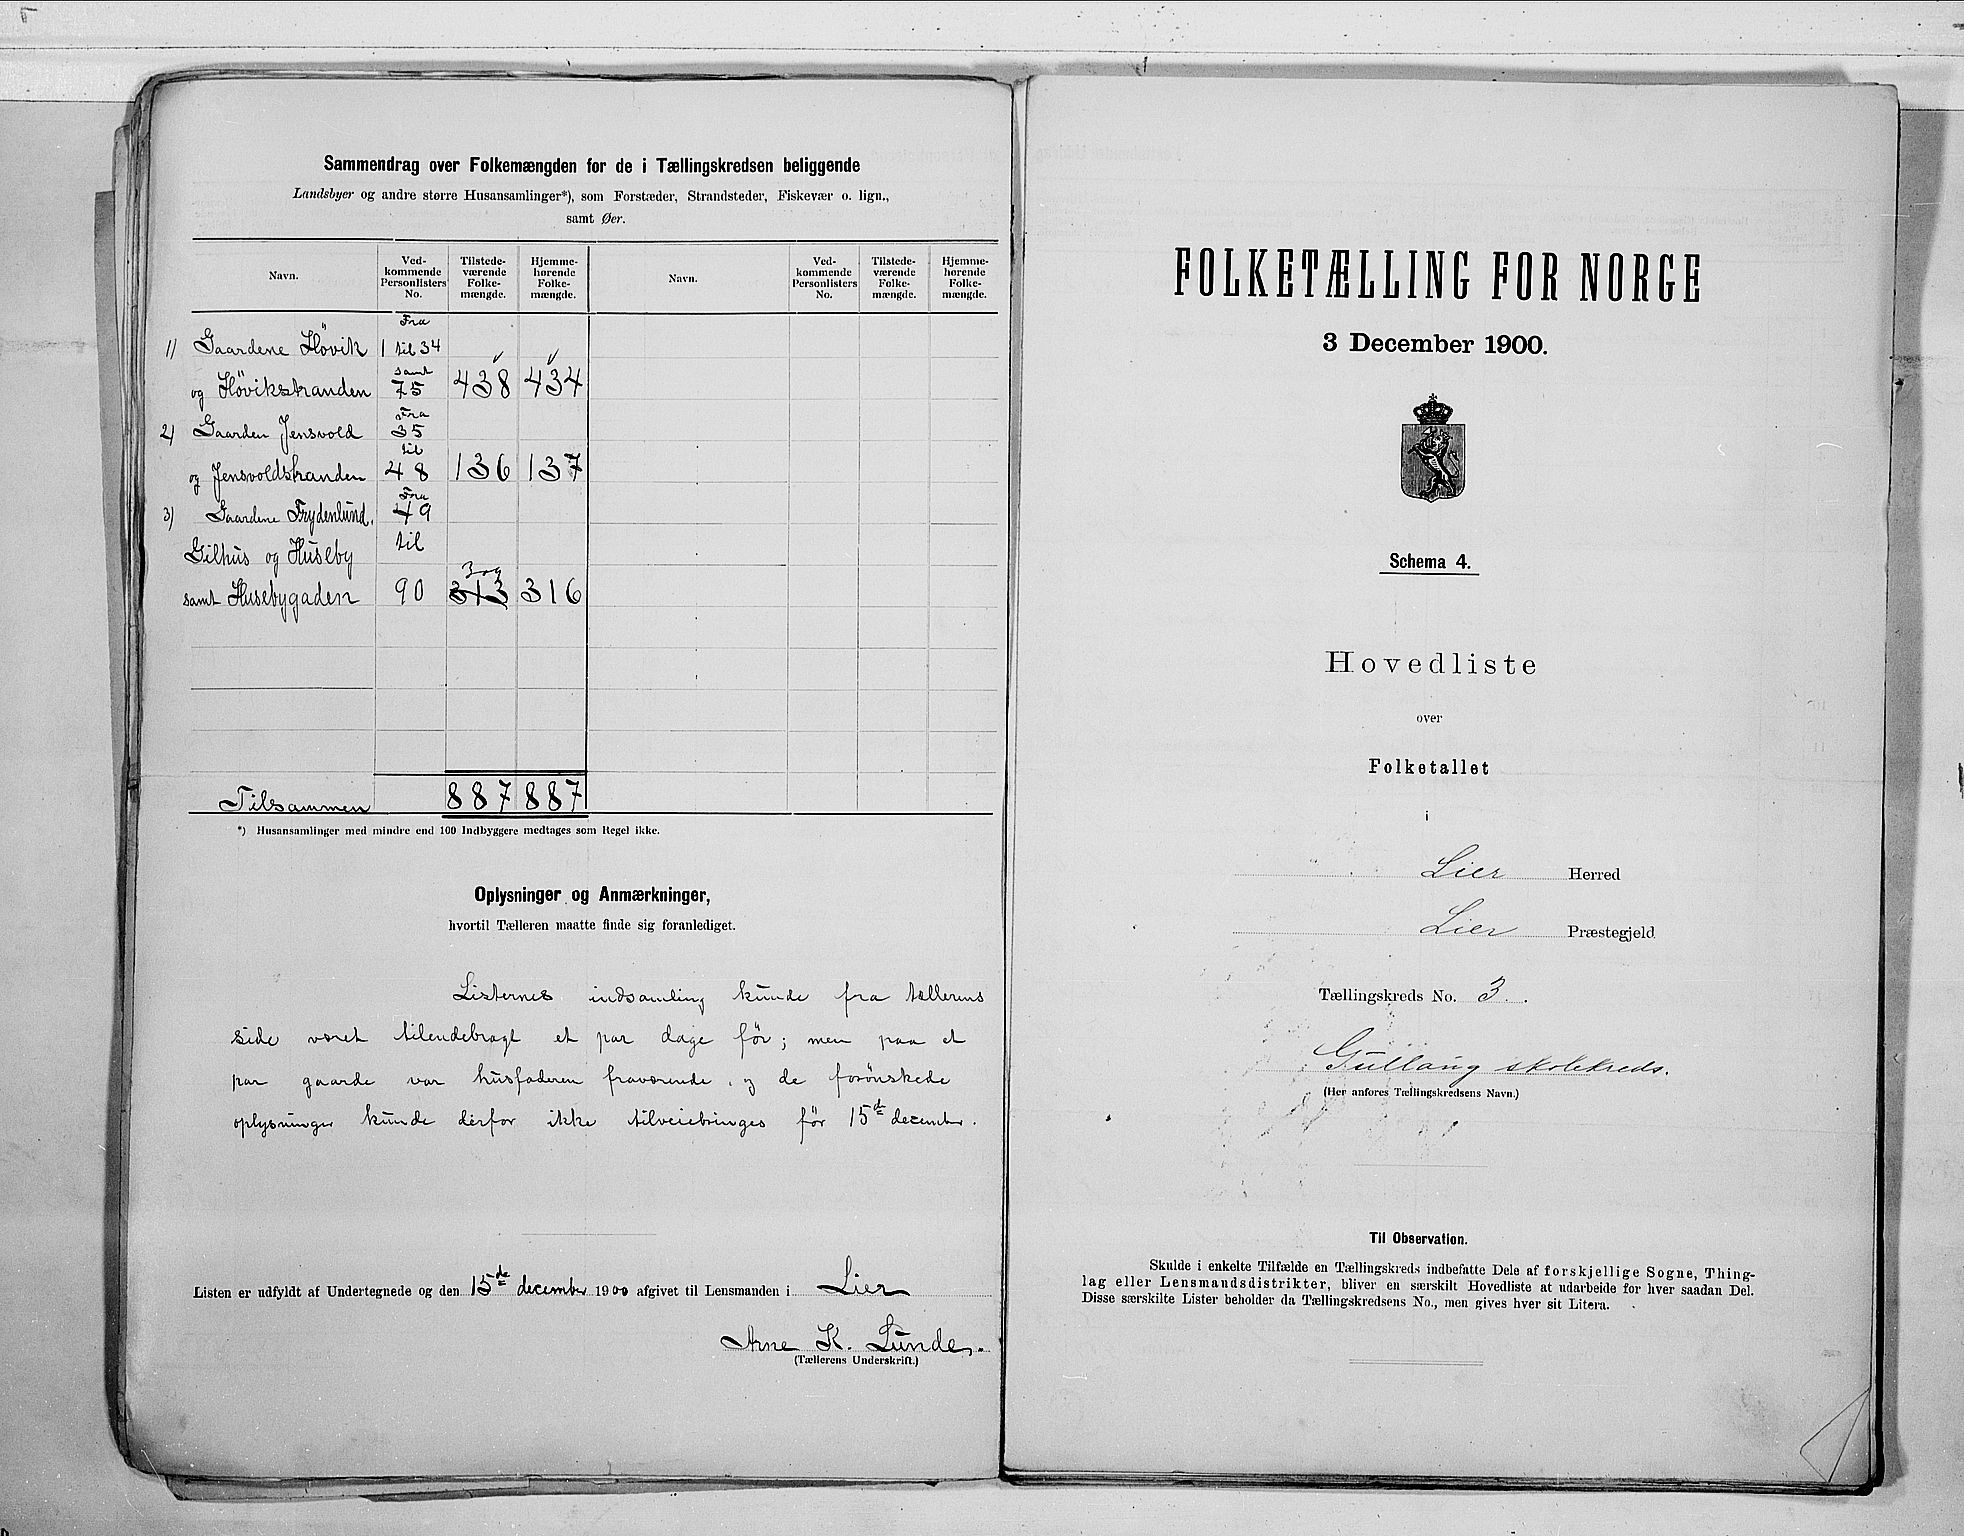 Sammendrag over Folkemængden for de i Tællingskredsen beliggende
Landsbyer og andre større Husansamlinger*), som Forstæder, Strandsteder, Fiskevær o. lign.,
samt Øer.
Navn. Ved-kommende Personlisters No. Tilstede-værende Folke-mængde. Hjemme-hørende Folke-mængde. Navn. Ved-kommende Personlisters No. Tilstede-værende Folke-mængde. Hjemme-hørende Folke-mængde.
Fra
1) Gaardene Høvik 1 til 34
samt
og Høvikstranden 75 438 434
Fra
2) Gaarden Jensvold 35
til
og Jensvoldstranden 48 136 137
Fra
3) Gaardene Frydenlund, 49
Gilhus og Huseby til
samt Husebygaden 90 313 316
Tilsammen 887 887
*) Husansamlinger med mindre end 100 Indbyggere medtages som Regel ikke.
Oplysninger og Anmærkninger,
hvortil Tælleren maatte finde sig foranlediget.
Listernes indsamling kunde fra tællerens
side været tilendebragt et par dage før; men paa et
par gaarde var husfaderen fraværende, og de forønskede
oplysninger kunde derfor ikke tilveiebringes før 15de december.
Listen er udfyldt af Undertegnede og den 15de december 1900 afgivet til Lensmanden i Lier
Arne K. Lunde.
(Tællerens Underskrift.)
FOLKETÆLLING FOR NORGE
3 December 1900.
Schema 4.
Hovedliste
over
Folketallet
i
Lier Herred
Lier Præstegjeld
Tællingskreds No. 3.
Gullaug skolekreds.
(Her anføres Tællingskredsens Navn.)
Til Observation.
Skulde i enkelte Tilfælde en Tællingskreds indbefatte Dele af forskjellige Sogne, Thing-
lag eller Lensmandsdistrikter, bliver en særskilt Hovedliste at udarbeide for hver saadan Del.
Disse særskilte Lister beholder da Tællingskredsens No., men gives hver sit Litera.